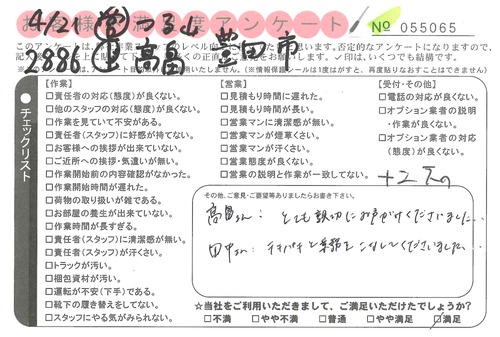 お客様満足度アンケート
4/21 営 つる山
No 055065
2886 高畠 豊田市
チェックリスト
【作業】
□責任者の対応(態度)が良くない。
□他のスタッフの対応(態度)が良くない。
□作業を見ていて不安がある。
□責任者(スタッフ)に好感が持てない。
□お客様への挨拶が出来ていない。
□ご近所への挨拶・気遣いが無い。
□作業開始前の内容確認がなかった。
□作業開始時間が遅れた。
□荷物の取り扱いが雑である。
□お部屋の養生が出来ていない。
□作業時間が長すぎる。
□責任者(スタッフ)に清潔感が無い。
□責任者(スタッフ)が汗くさい。
□トラックが汚い。
□梱包資材が汚い。
□運転が不安(下手)である。
□靴下の履き替えをしてない。
□スタッフにやる気がみられない。
【営業】
□見積もり時間に遅れた。
□見積もり時間が長い。
□営業マンに清潔感が無い。
□営業マンが煙草くさい。
□営業マンが汗くさい。
□営業態度が良くない。
□営業の説明と作業が一致してない。
【受付・その他】
□電話の対応が良くない。
□オプション業者の説明
・作業が良くない。
□オプション業者の対応
(態度)が良くない。
その他、ご意見・ご要望等ありましたらお書き下さい。
高畠さん: とても親切にお声がけくださいました
田中さん: テキパキと業務をこなしてくださいました
☆当社をご利用いただきまして、ご満足いただけたでしょうか?
□不満 □やや不満 □普通 □やや満足 □満足